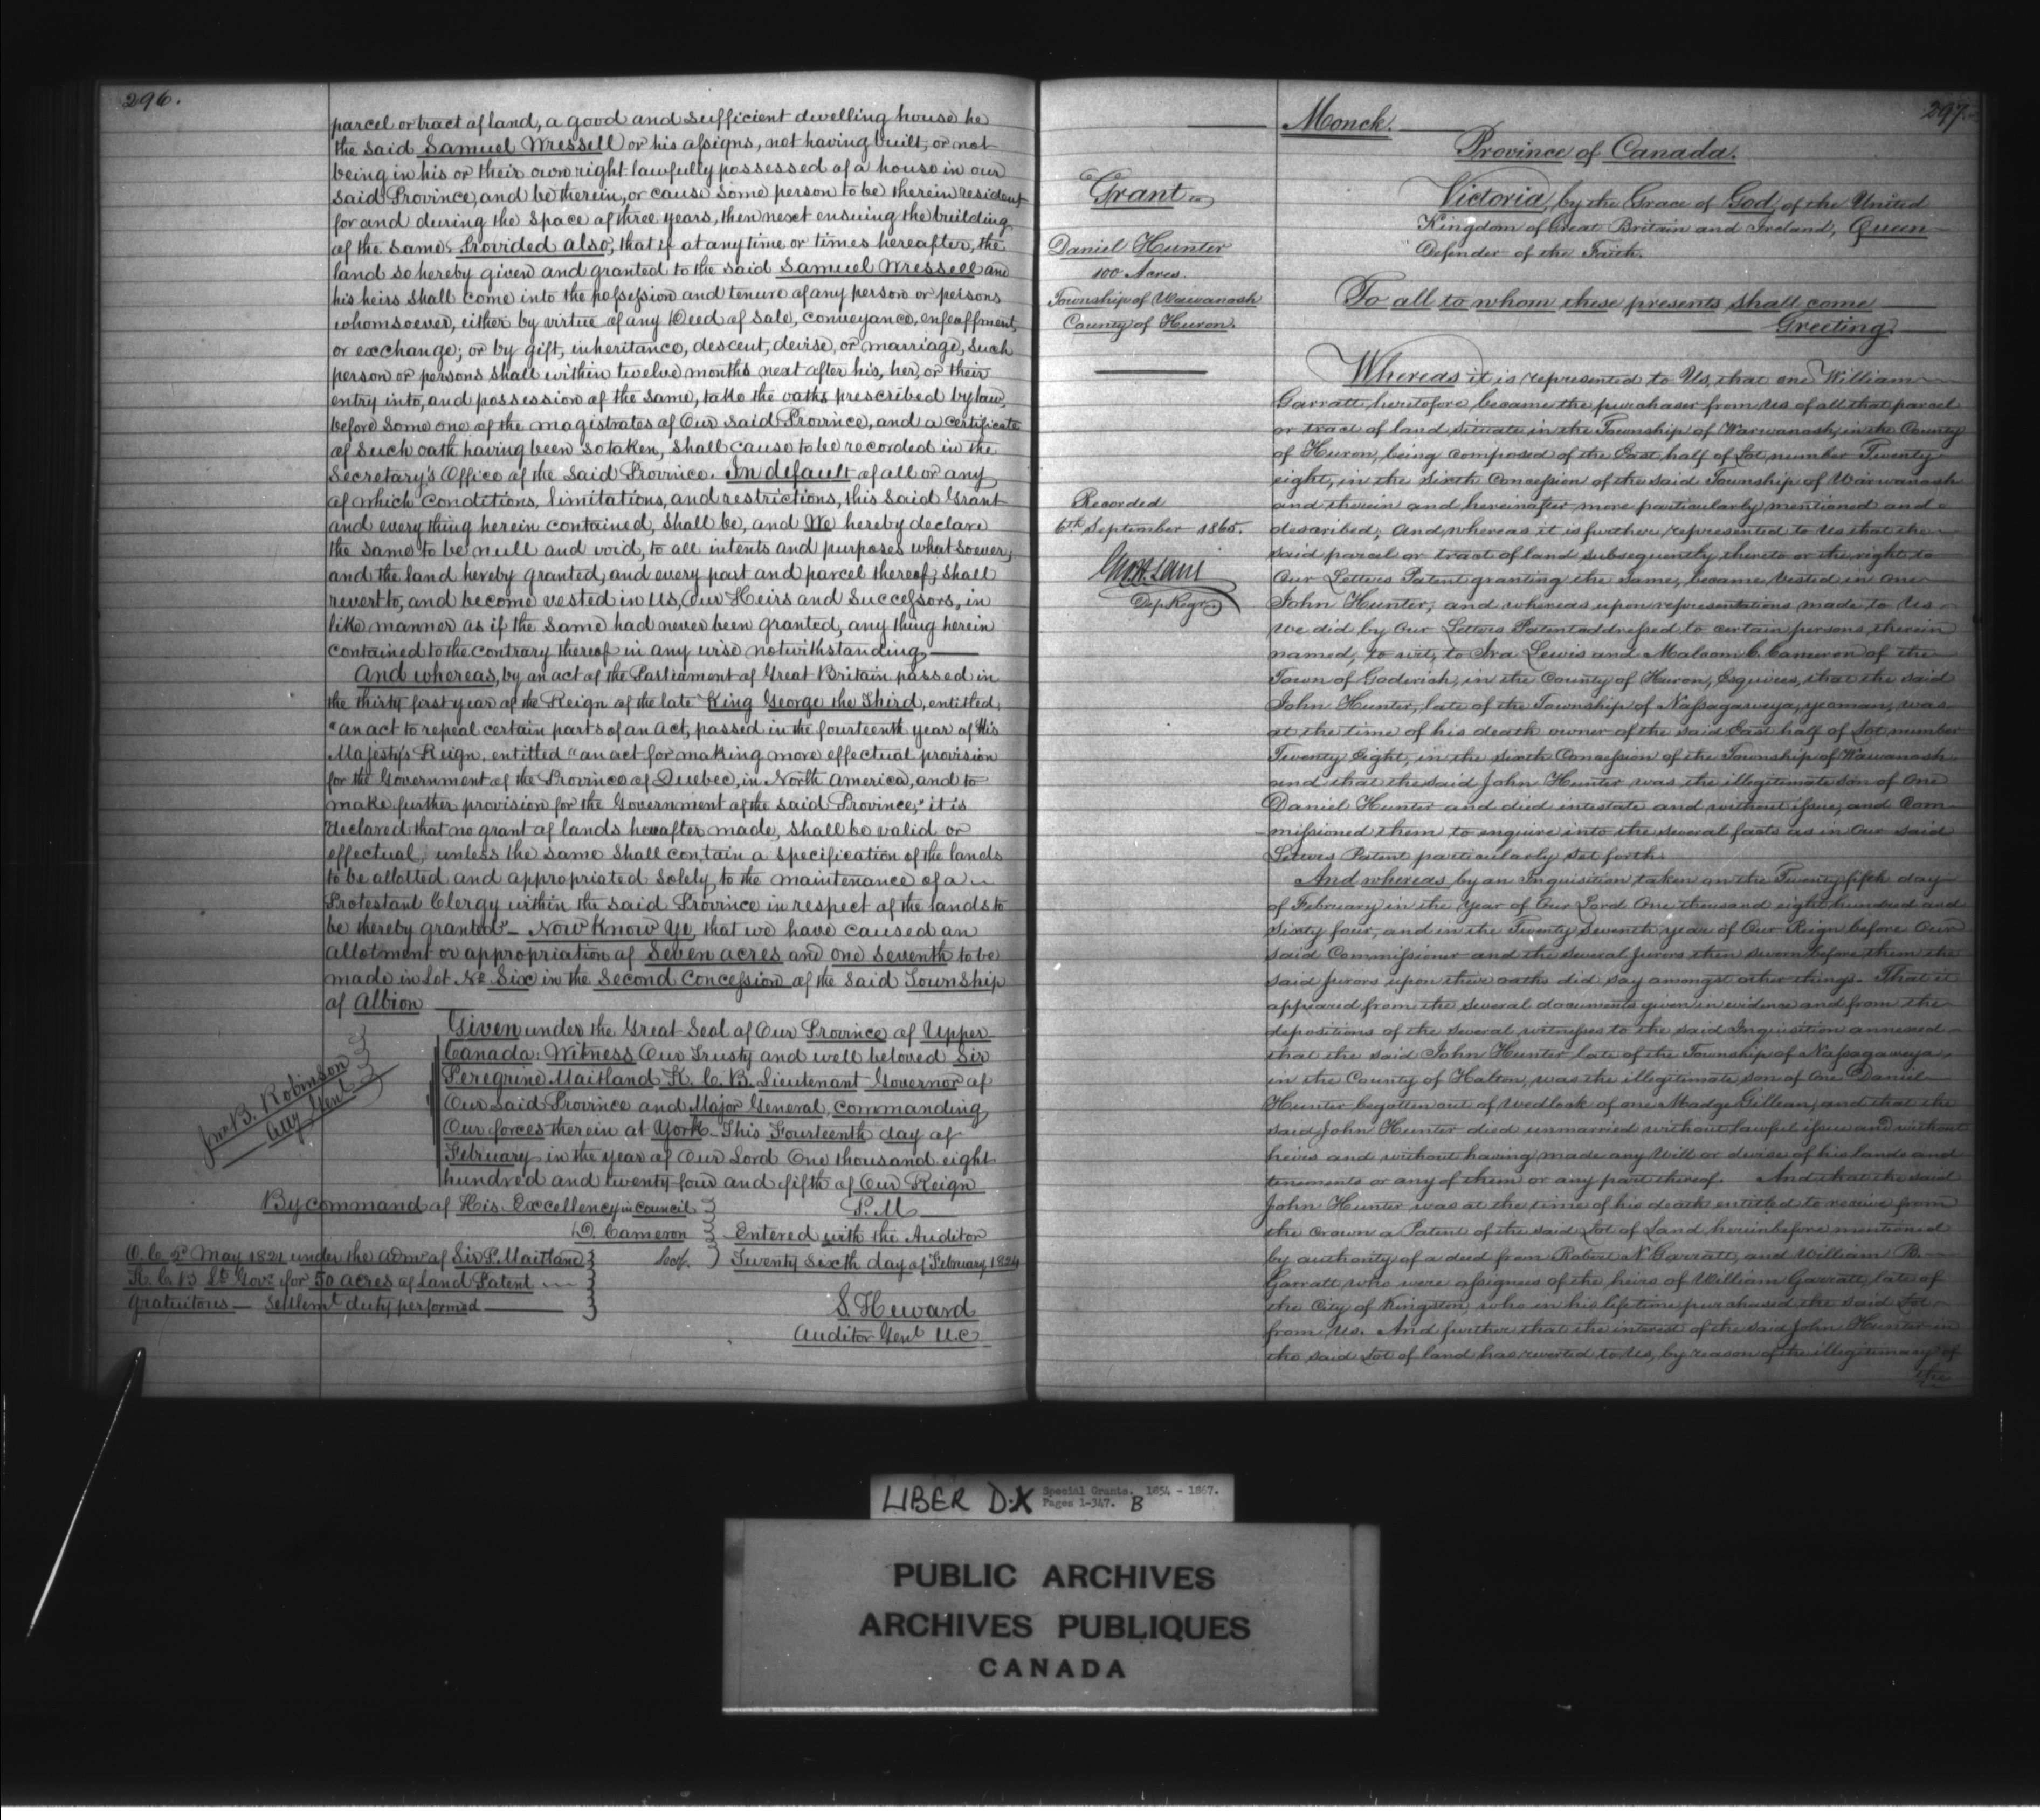 296.
parcel or tract of land, a good and sufficient dwelling house he
the said Samuel Wressell or his assigns, not having built, or not
being in his or their own right lawfully possessed of a house in our
said Province, and be therein, or cause some person to be therein resident
for and during the space of three years, then next ensuing the building
of the same. Provided also, that if at any time or times hereafter, the
land so hereby given and granted to the said Samuel Wressell and
his heirs shall come into the possession and tenure of any person or persons
whomsoever, either by virtue of any Deed of sale, conveyance, enfeoffment,
or exchange; or by gift, inheritance, descent, devise, or marriage, such
person or persons shall within twelve months next after his, her, or their
entry into, and possession of the same, take the oaths prescribed by law,
before some one of the magistrates of Our said Province, and a certificate
of such oath having been so taken, shall cause to be recorded in the
Secretary's Office of the said Province. In default of all or any
of which conditions, limitations, and restrictions, this said Grant
and every thing herein contained, shall be, and We hereby declare
the same to be null and void, to all intents and purposes whatsoever,
and the land hereby granted, and every part and parcel thereof, shall
revert to, and become vested in Us, Our Heirs and Successors, in
like manner as if the same had never been granted, any thing herein
contained to the contrary thereof in any wise notwithstanding
And whereas, by an act of the Parliament of Great Britain passed in
the thirty first year of the Reign of the late King George the Third, entitled,
"an act to repeal certain parts of an Act, passed in the fourteenth year of His
Majesty's Reign, entitled "an act for making more effectual provision
for the Government of the Province of Quebec, in North America, and to
make further provision for the Government of the said Province," it is
"declared that no grant of lands hereafter made, shall be valid or
effectual, unless the same shall contain a specification of the lands
to be allotted and appropriated solely to the maintenance of a
Protestant Clergy within the said Province in respect of the lands to
be thereby granted" - Now Know Ye, that we have caused an
allotment or appropriation of Seven acres and one seventh to be
made in Lot No. Six in the Second Concession of the said Township
of Albion
Given under the Great Seal of Our Province of Upper
Canada: Witness Our Trusty and well beloved Sir
Peregrine Maitland K. C. B. Lieutenant Governor of
Our said Province and Major General commanding
Our forces therein at York. This Fourteenth day of
February in the year of Our Lord One thousand eight
hundred and twenty four and fifth of Our Reign
Jno. B. Robinson
Atty Genl
By command of His Excellency in Council P. M
D. Cameron Entered with the Auditor
Secy. Twenty Sixth day of February 1824
O. C. 2d May 1821 under the Admn of Sir P. Maitland
K. C. B Lt Govr for 50 acres of Land Patent
Gratuitous - Settlemt duty performed
S. Heward
Auditor Genl U.C
297.
Monck.
Province of Canada.
Grant to
Daniel Hunter
100 Acres.
Township of Wawanosh
County of Huron.
Recorded
6th September 1865.
Dep Regr
Victoria, by the Grace of God, of the United
Kingdom of Great Britain and Ireland, Queen
Defender of the Faith.
To all to whom these presents shall come
Greeting.
Whereas it is represented to Us, that one William
Garratt, heretofore became the purchaser from Us of all that parcel
or tract of land situate in the Township of Wawanosh, in the County
of Huron, being composed of the East half of Lot number Twenty
eight, in the sixth Concession of the said Township of Wawanosh
and therein and hereinafter more particularly mentioned and
described; And whereas it is further represented to Us that the
said parcel or tract of land subsequently thereto or the right to
Our Letters Patent granting the same, became vested in one
John Hunter; and whereas upon representations made to Us
We did by Our Letters Patent addressed to certain persons therein
named, to wit, to Ira Lewis and Malcom C. Cameron of the
Town of Goderich, in the County of Huron, Esquires, that the said
John Hunter, late of the Township of Nassagaweya, yeoman, was
at the time of his death owner of the said East half of Lot number
Twenty Eight, in the sixth Concession of the Township of Wawanosh,
and that the said John Hunter was the illegitimate son of one
Daniel Hunter and died intestate and without issue, and Com-
missioned them to enquire into the several facts as in Our said
Letters Patent particularly set forth.
And whereas by an Inquisition taken on the Twenty fifth day
of February in the year of Our Lord One thousand eight hundred and
Sixty four, and in the Twenty Seventh year of Our Reign before Our
said Commissioner and the several Jurors then sworn before them the
said Jurors upon their oaths did say amongst other things. That it
appeared from the several documents given in evidence and from the
depositions of the several witnesses to the said Inquisition annexed
that the said John Hunter late of the Township of Nassagaweya,
in the County of Halton, was the illegitimate son of one Daniel
Hunter begotten out of Wedlock of one Madge Gillean, and that the
said John Hunter died unmarried without lawful issue and without
heirs and without having made any Will or devise of his lands and
tenements or any of them or any part thereof. And that the said
John Hunter was at the time of his death entitled to receive from
the Crown a Patent of the said Lot of Land hereinbefore mentioned
by authority of a deed from Robert N Garratt, and William B.
Garratt who were assignees of the heirs of William Garratt, late of
the City of Kingston, who in his life time purchased the said Lot
from Us. And further that the interest of the said John Hunter in
the said Lot of land has reverted to Us, by reason of the illegitimacy of
the
LIBER D.X Special Grants. 1854 - 1867.
Pages 1-347. B
PUBLIC ARCHIVES
ARCHIVES PUBLIQUES
CANADA